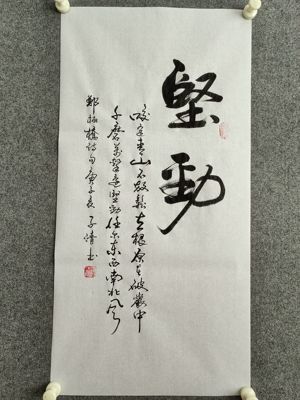 堅勁
咬定青山不放鬆立根原在破巖中
千磨萬擊還堅勁任尔东西南北风
鄭板橋詩句庚子 子 书